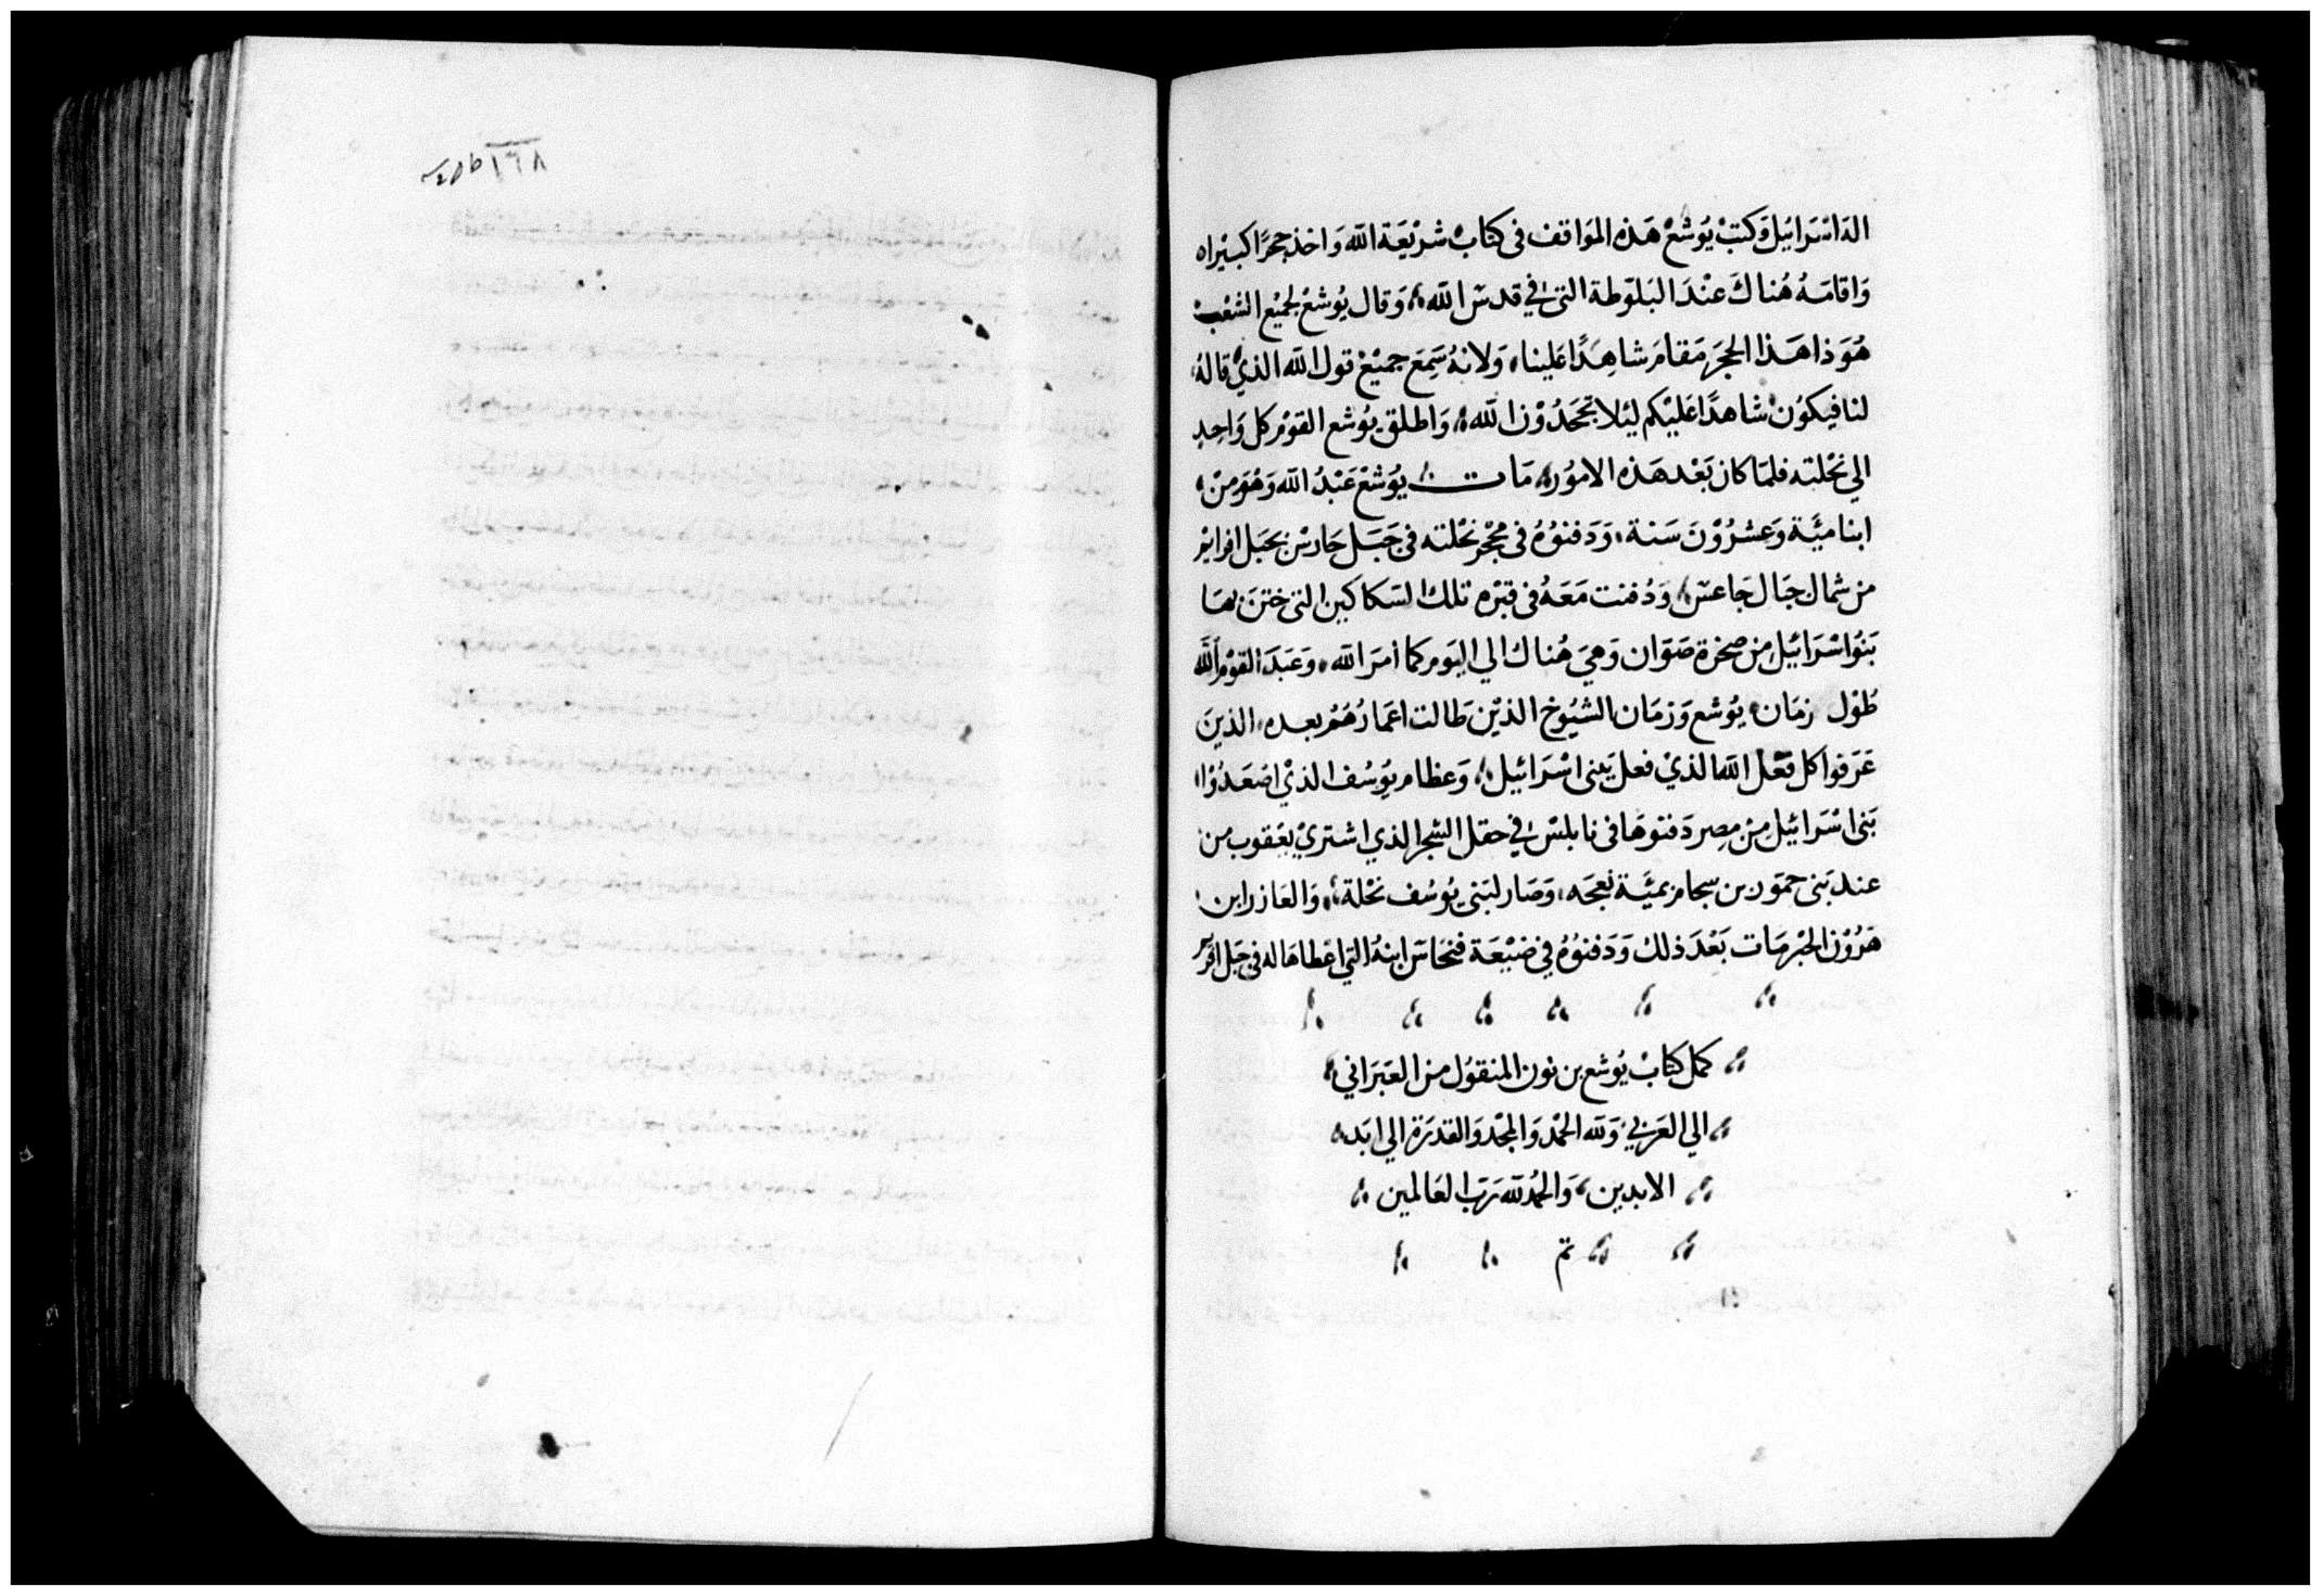 اله اسْرَائيل وَكتبْ يُوشعْ هَذه المَوَاقف فى كتابْ شرْيعَة الله وَاخذ حجرًا كبيْرا
وَاقامَهُ هُناك عنْدَ البَلوّطة التى في قدسَ الله، وَقال يُوشعْ لجميْع الشعْبْ
هُوَ ذا هَذا الحجرَ مَقامَ شاهِدًا عَلينا، وَلانهُ سَمِعَ جميْعْ قول الله الذيْ قالهُ
لنا فيكوُنْ شاهدًا عَليْكم ليَلا تجحَدُوْن الله، وَاطلق يوُشع القوْم كل وَاحِدٍ
الي نحْلته فلمَا كان بَعْد هَذه الامُورْ، مَات يُوشعْ عَبْدُ الله وَهُوَ منْ
ابنا ميَّة وَعشرُوْنَ سَنة، وَدَفنوُهُ فى محْجر نحْلته فى جَبَل جَارسْ بجبَل افرايمْ
من شمال جَال جَاعسَ، وَدُفنت مَعَهُ فى قبْره تلك السَكاكين التى ختن بهَا
بَنُوا سْرَائيْل منْ صخرَة صَوَان وَهيَ هُناك الي اليَوم كما أمَر الله، وَعَبَدَ القوْم الله
طُوْل زمَان يُوشع وَزمَان الشيُوخ الذيْن طَالت اعَمارُهُمْ بعده، الذينَ
عَرَفوا كل فعْل الله الذيْ فعل ببَنى اسْرَائيل، وَعظام يوُسُف الذيْ اصَعَدُوْا
بَنى اسْرَائيل منْ مِصر دَفنوهَا فى نابلسْ في حقل الشجر الذي اشتريْ يعْقوب من
عند بَنى حموَر بن سجام بميَّة نعجَه، وَصَار لبَنى يوُسُف نحْلة، وَالعَازر ابن
هَرُوْن الحبْر مَات بَعْدَ ذلك وَدَفنوُهُ في ضيْعَة فنحَاسَ ابنهُ التي اعْطاهَا له فى جَبل افر
كمل كتابْ يُوشع بن نون المنقوُل من العبَرَاني
الي العَرَبي وَلله الحمْد وَالمجْد وَالقدرَة الي ابَد
الابدين، وَالحمُد لله رَبّ العَالمين
تم
١٦٨